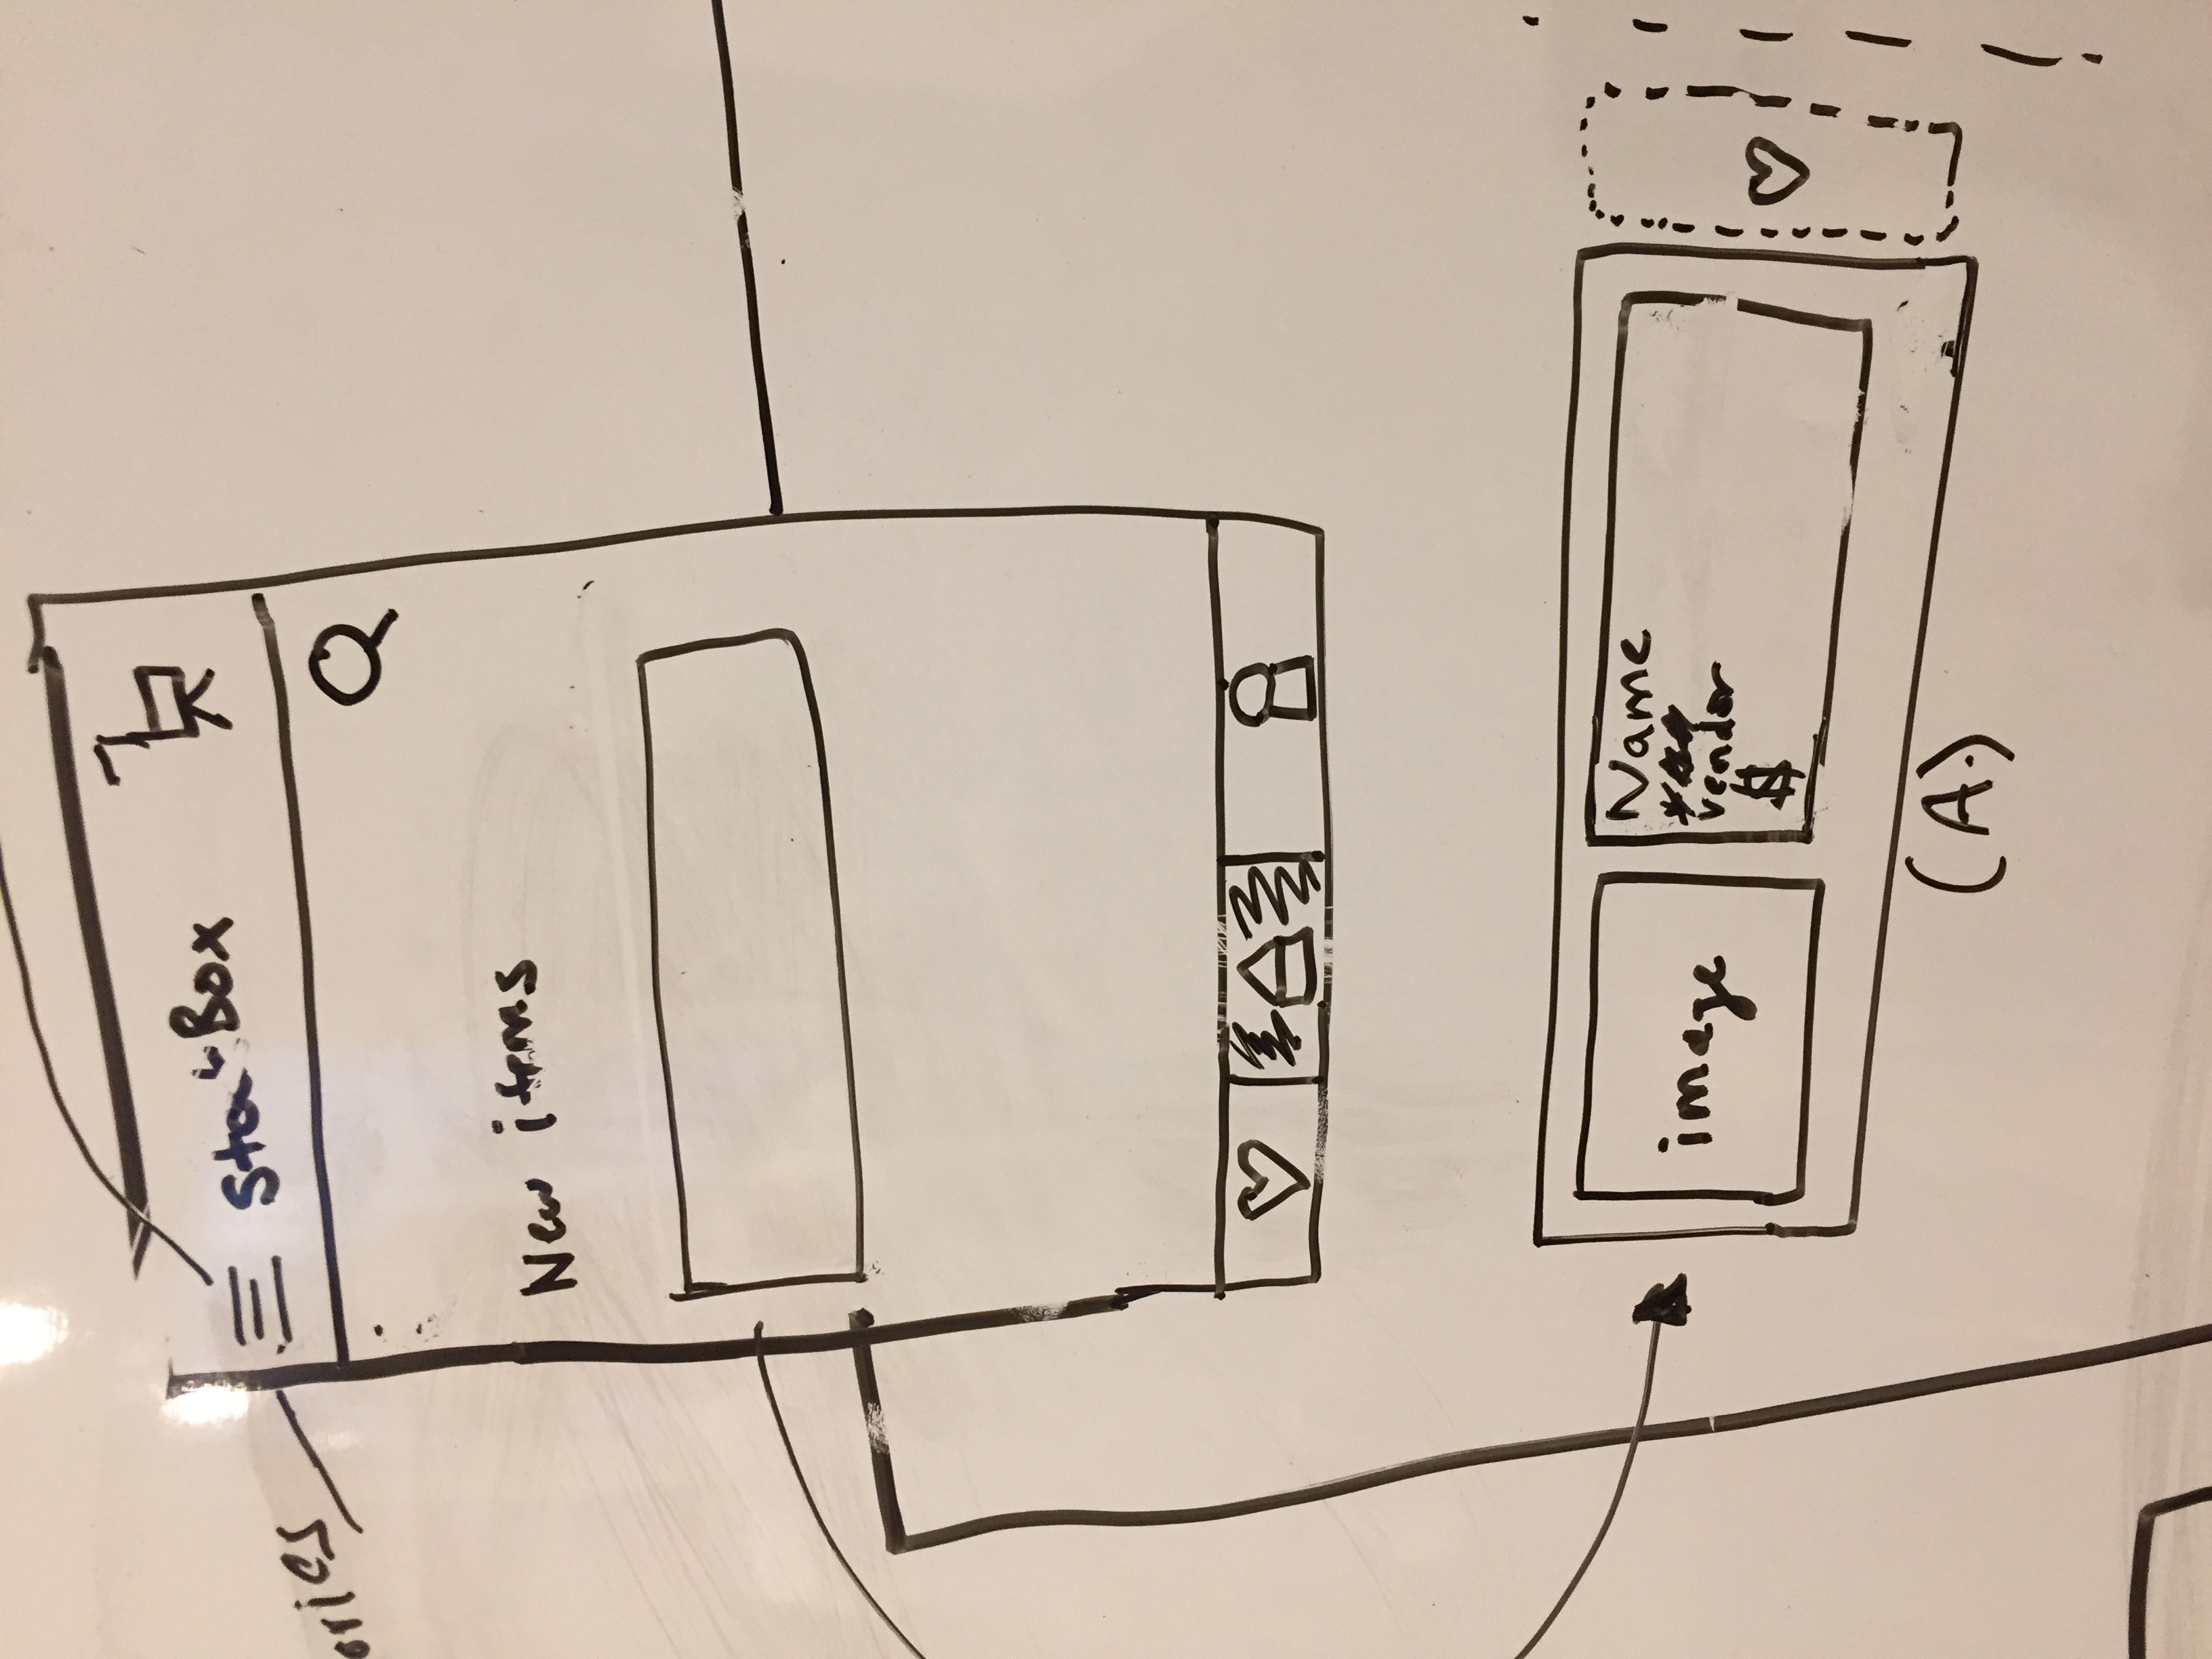 ories
Box
New items
image
Name
***
vendor
$
(A.)